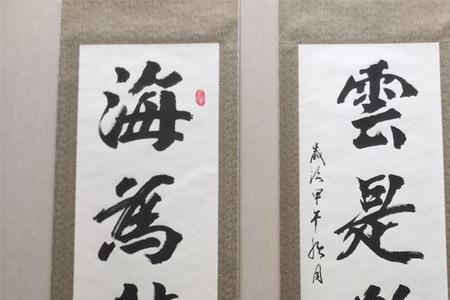 海為
雲是
歲次甲午秋月